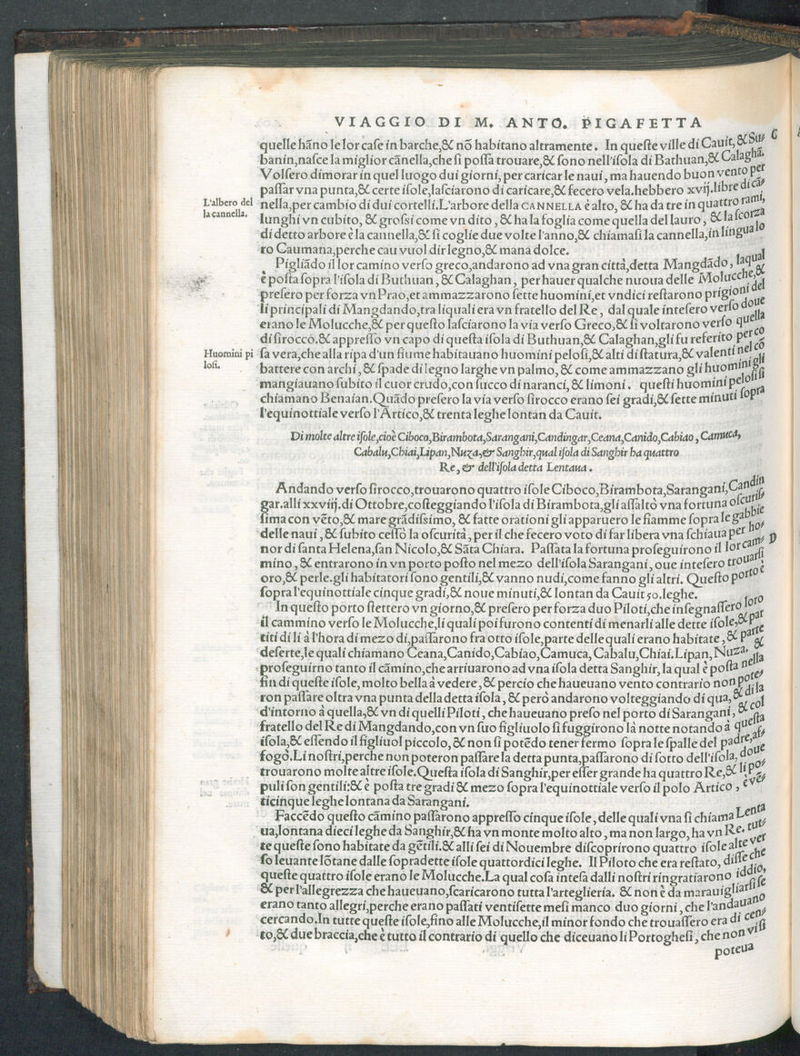 VIAGGIO DI M. ANTO. PIGAFETTA
quelle hãno le lor caſe in barche,& nõ habitano altramente. In queſte ville di Cauit, & Su⸗
G
banin,naſce la miglior cãnella,che ſi poſſa trouare,& ſono nell'iſola di Bathuan,& Calaghã.
Volſero dimorar in quel luogo dui giorni, per caricar le naui, ma hauendo buon vento per
paſſar vna punta,& certe iſole,laſciarono di caricare,& fecero vela.hebbero xvij.libre di cã⸗
L'albero del
la cannella.
nella,per cambio di dui cortelli.L'arbore della CANNELLA è alto, & ha da tre in quattro rami,
lunghi vn cubito, & groſsi come vn dito, & ha la foglia come quella del lauro, & la ſcorza
di detto arbore è la cannella,& ſi coglie due volte l'anno,& chiamaſi la cannella,in lingua lo
ro Caumana,perche cau vuol dir legno,& mana dolce.
Pigliãdo il lor camino verſo greco,andarono ad vna gran città,detta Mangdãdo, laqual
è poſta ſopra l'iſola di Buthuan, & Calaghan, per hauer qualche nuoua delle Molucche,&
preſero per forza vn Prao,et ammazzarono ſette huomini,et vndici reſtarono prigioni del
li principali di Mangdando,tra liquali era vn fratello del Re, dal quale inteſero verſo doue
erano le Molucche,& per queſto laſciarono la via verſo Greco,& ſi voltarono verſo quella
di ſirocco.& appreſſo vn capo di queſta iſola di Buthuan,& Calaghan,gli fu referito per co
Huomini pi
loſi.
ſa vera,che alla ripa d'un fiume habitauano huomini peloſi,& alti di ſtatura,& valenti nel cõ
battere con archi, & ſpade di legno larghe vn palmo, & come ammazzano gli huomini gli
mangiauano ſubito il cuor crudo,con ſucco di naranci, & limoni. queſti huomini peloſi ſi
chiamano Benaian.Quãdo preſero la via verſo ſirocco erano ſei gradi,& ſette minuti ſopra
l'equinottiale verſo l'Artico,& trenta leghe lontan da Cauit.
Di molte altre iſole,cioè Ciboco,Birambota,Sarangani,Candingar,Ceana,Canido,Cabiao, Camuca,
Cabalu,Chiai,Lipan,Nuza,& Sanghir,qual iſola di Sanghir ha quattro
Re, & dell'iſola detta Lentaua.
Andando verſo ſirocco,trouarono quattro iſole Ciboco,Birambota,Sarangani,Candin
gar.alli xxviij.di Ottobre,coſteggiando l'iſola di Birambota,gli aſſaltò vna fortuna oſcuriſ⸗
ſima con vẽto,& mare grãdiſsimo, & fatte orationi gli apparuero le fiamme ſopra le gabbie
delle naui, & ſubito ceſſò la oſcurità, per il che fecero voto di far libera vna ſchiaua per ho⸗
nor di ſanta Helena,ſan Nicolo,& Sãta Chiara. Paſſata la fortuna proſeguirono il lor cam⸗
D
mino, & entrarono in vn porto poſto nel mezo dell'iſola Sarangani, oue inteſero trouarſi
oro,& perle.gli habitatori ſono gentili,& vanno nudi,come fanno gli altri. Queſto porto è
ſopra l'equinottiale cinque gradi,& noue minuti,& lontan da Cauit 50.leghe.
In queſto porto ſtettero vn giorno,& preſero per forza duo Piloti,che inſegnaſſero loro
il cammino verſo le Molucche,li quali poi furono contenti di menarli alle dette iſole,& par
titi di li à l'hora di mezo dì,paſſarono fra otto iſole,parte delle quali erano habitate, & parte
deſerte,le quali chiamano Ceana,Canido,Cabiao,Camuca,Cabalu,Chiai,Lipan, Nuza. &
proſeguirno tanto il cãmino,che arriuarono ad vna iſola detta Sanghir, la qual è poſta nella
fin di queſte iſole, molto bella à vedere, & percio che haueuano vento contrario non pote⸗
ron paſſare oltra vna punta della detta iſola, & però andarono volteggiando di qua, & di la
d'intorno à quella,& vn di quelli Piloti, che haueuano preſo nel porto di Sarangani, & col
fratello del Re di Mangdando,con vn ſuo figliuolo ſi fuggirono là notte notando à queſta
iſola,& eſſendo il figliuol piccolo, & non ſi potẽdo tener fermo ſopra le ſpalle del padre,af⸗
fogò.Li noſtri,perche non poteron paſſare la detta punta,paſſarono di ſotto dell'iſola, doue
trouarono molte altre iſole.Queſta iſola di Sanghir,per eſſer grande ha quattro Re,& li po⸗
puli ſon gentili:& è poſta tre gradi & mezo ſopra l'equinottiale verſo il polo Artico, & vẽ⸗
ticinque leghe lontana da Sarangani.
Faccẽdo queſto cãmino paſſarono appreſſo cinque iſole, delle quali vna ſi chiama Lenta
ua,lontana dieci leghe da Sanghir,& ha vn monte molto alto, ma non largo, ha vn Re. tut⸗
te queſte ſono habitate da gẽtili.& alli ſei di Nouembre diſcoprirono quattro iſole alte ver
ſo leuante lõtane dalle ſopradette iſole quattordici leghe. Il Piloto che era reſtato, diſſe che
queſte quattro iſole erano le Molucche.La qual coſa inteſa dalli noſtri ringratiarono iddio,
& per l'allegrezza che haueuano,ſcaricarono tutta l'artegliería. & non è da marauigliarſi ſe
erano tanto allegri,perche erano paſſati ventiſette meſi manco duo giorni, che l'andauano
cercando.In tutte queſte iſole,fino alle Molucche,il minor fondo che trouaſſero era di cen⸗
to,& due braccia,che è tutto il contrario di quello che diceuano li Portogheſi, che non vi ſi
poteua